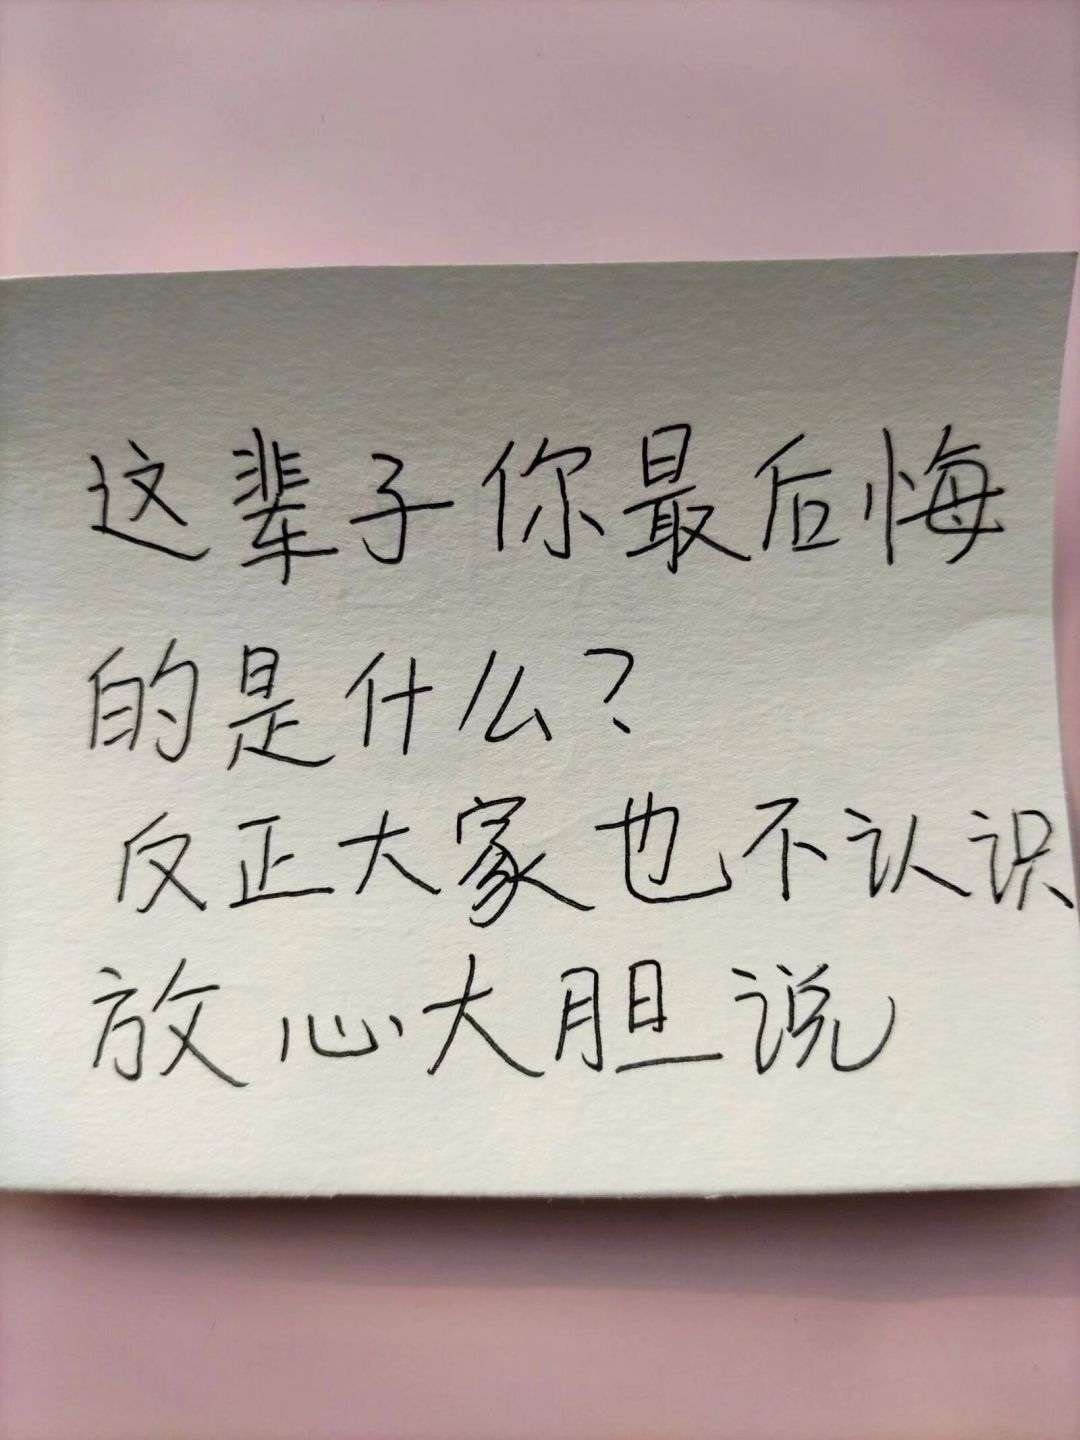 这辈子你最后悔
的是什么?
反正大家也不认识
放心大胆说